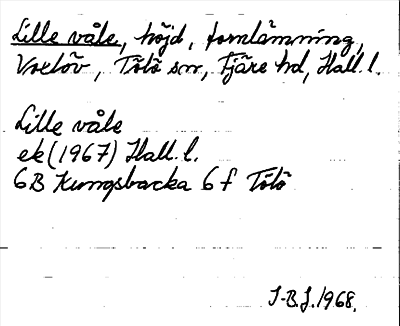 Lille våle, höjd, fornlämning,
Voxlöv, Tölö sn, Fjäre hd, Hall. l.
Lille våle
ek (1967) Hall. l.
6B Kungsbacka 6f Tölö
I-B.J. 1968.